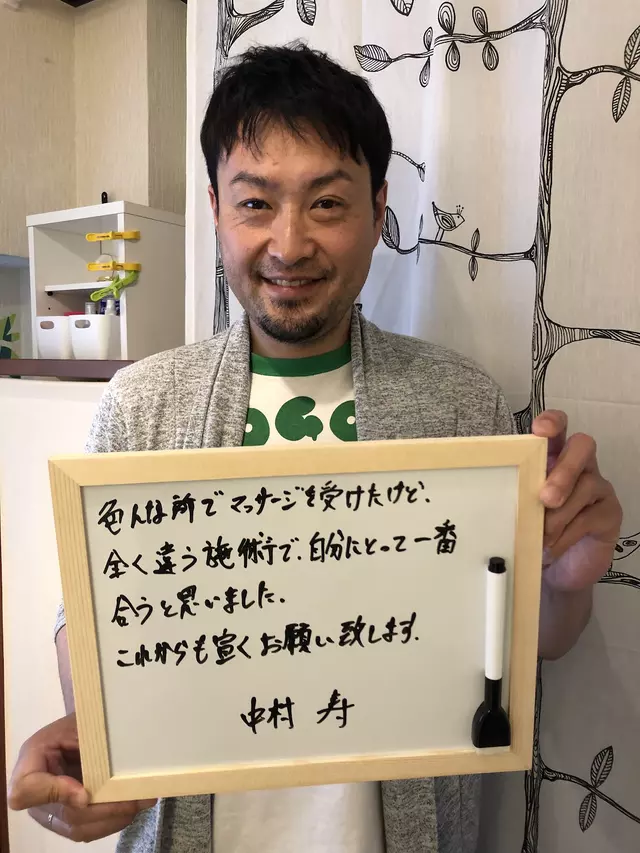 色んな所でマッサージを受けたけど、
全く違う施術で、自分にとって一番
合うと思いました。
これからも宜くお願い致します。
中村 寿